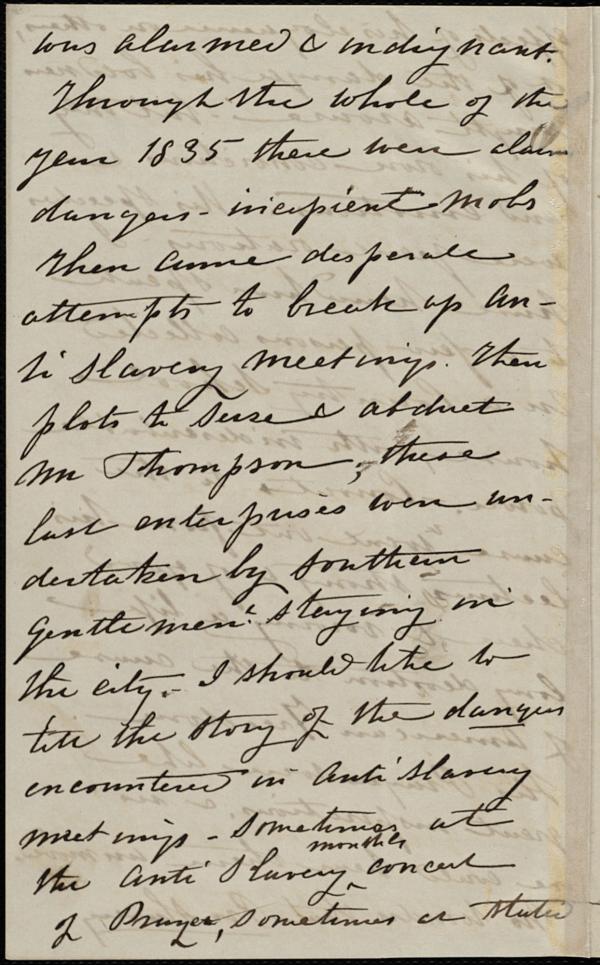 was alarmed & indignant.
Through the whole of the
year 1835 there were alarm
dangers - incipient mobs
Then came desperate
attempts to break up An-
ti Slavery meetings. Then
plots to seize & abduct
Mr Thompson, these
last enterprises were un-
dertaken by Southern
"Gentlemen" staying in
the city. - I should like to
tell the story of the dangers
encountered in Anti Slavery
meetings - Sometimes at
monthly
the Anti Slavery ^ concert
of Prayer, sometimes at stated